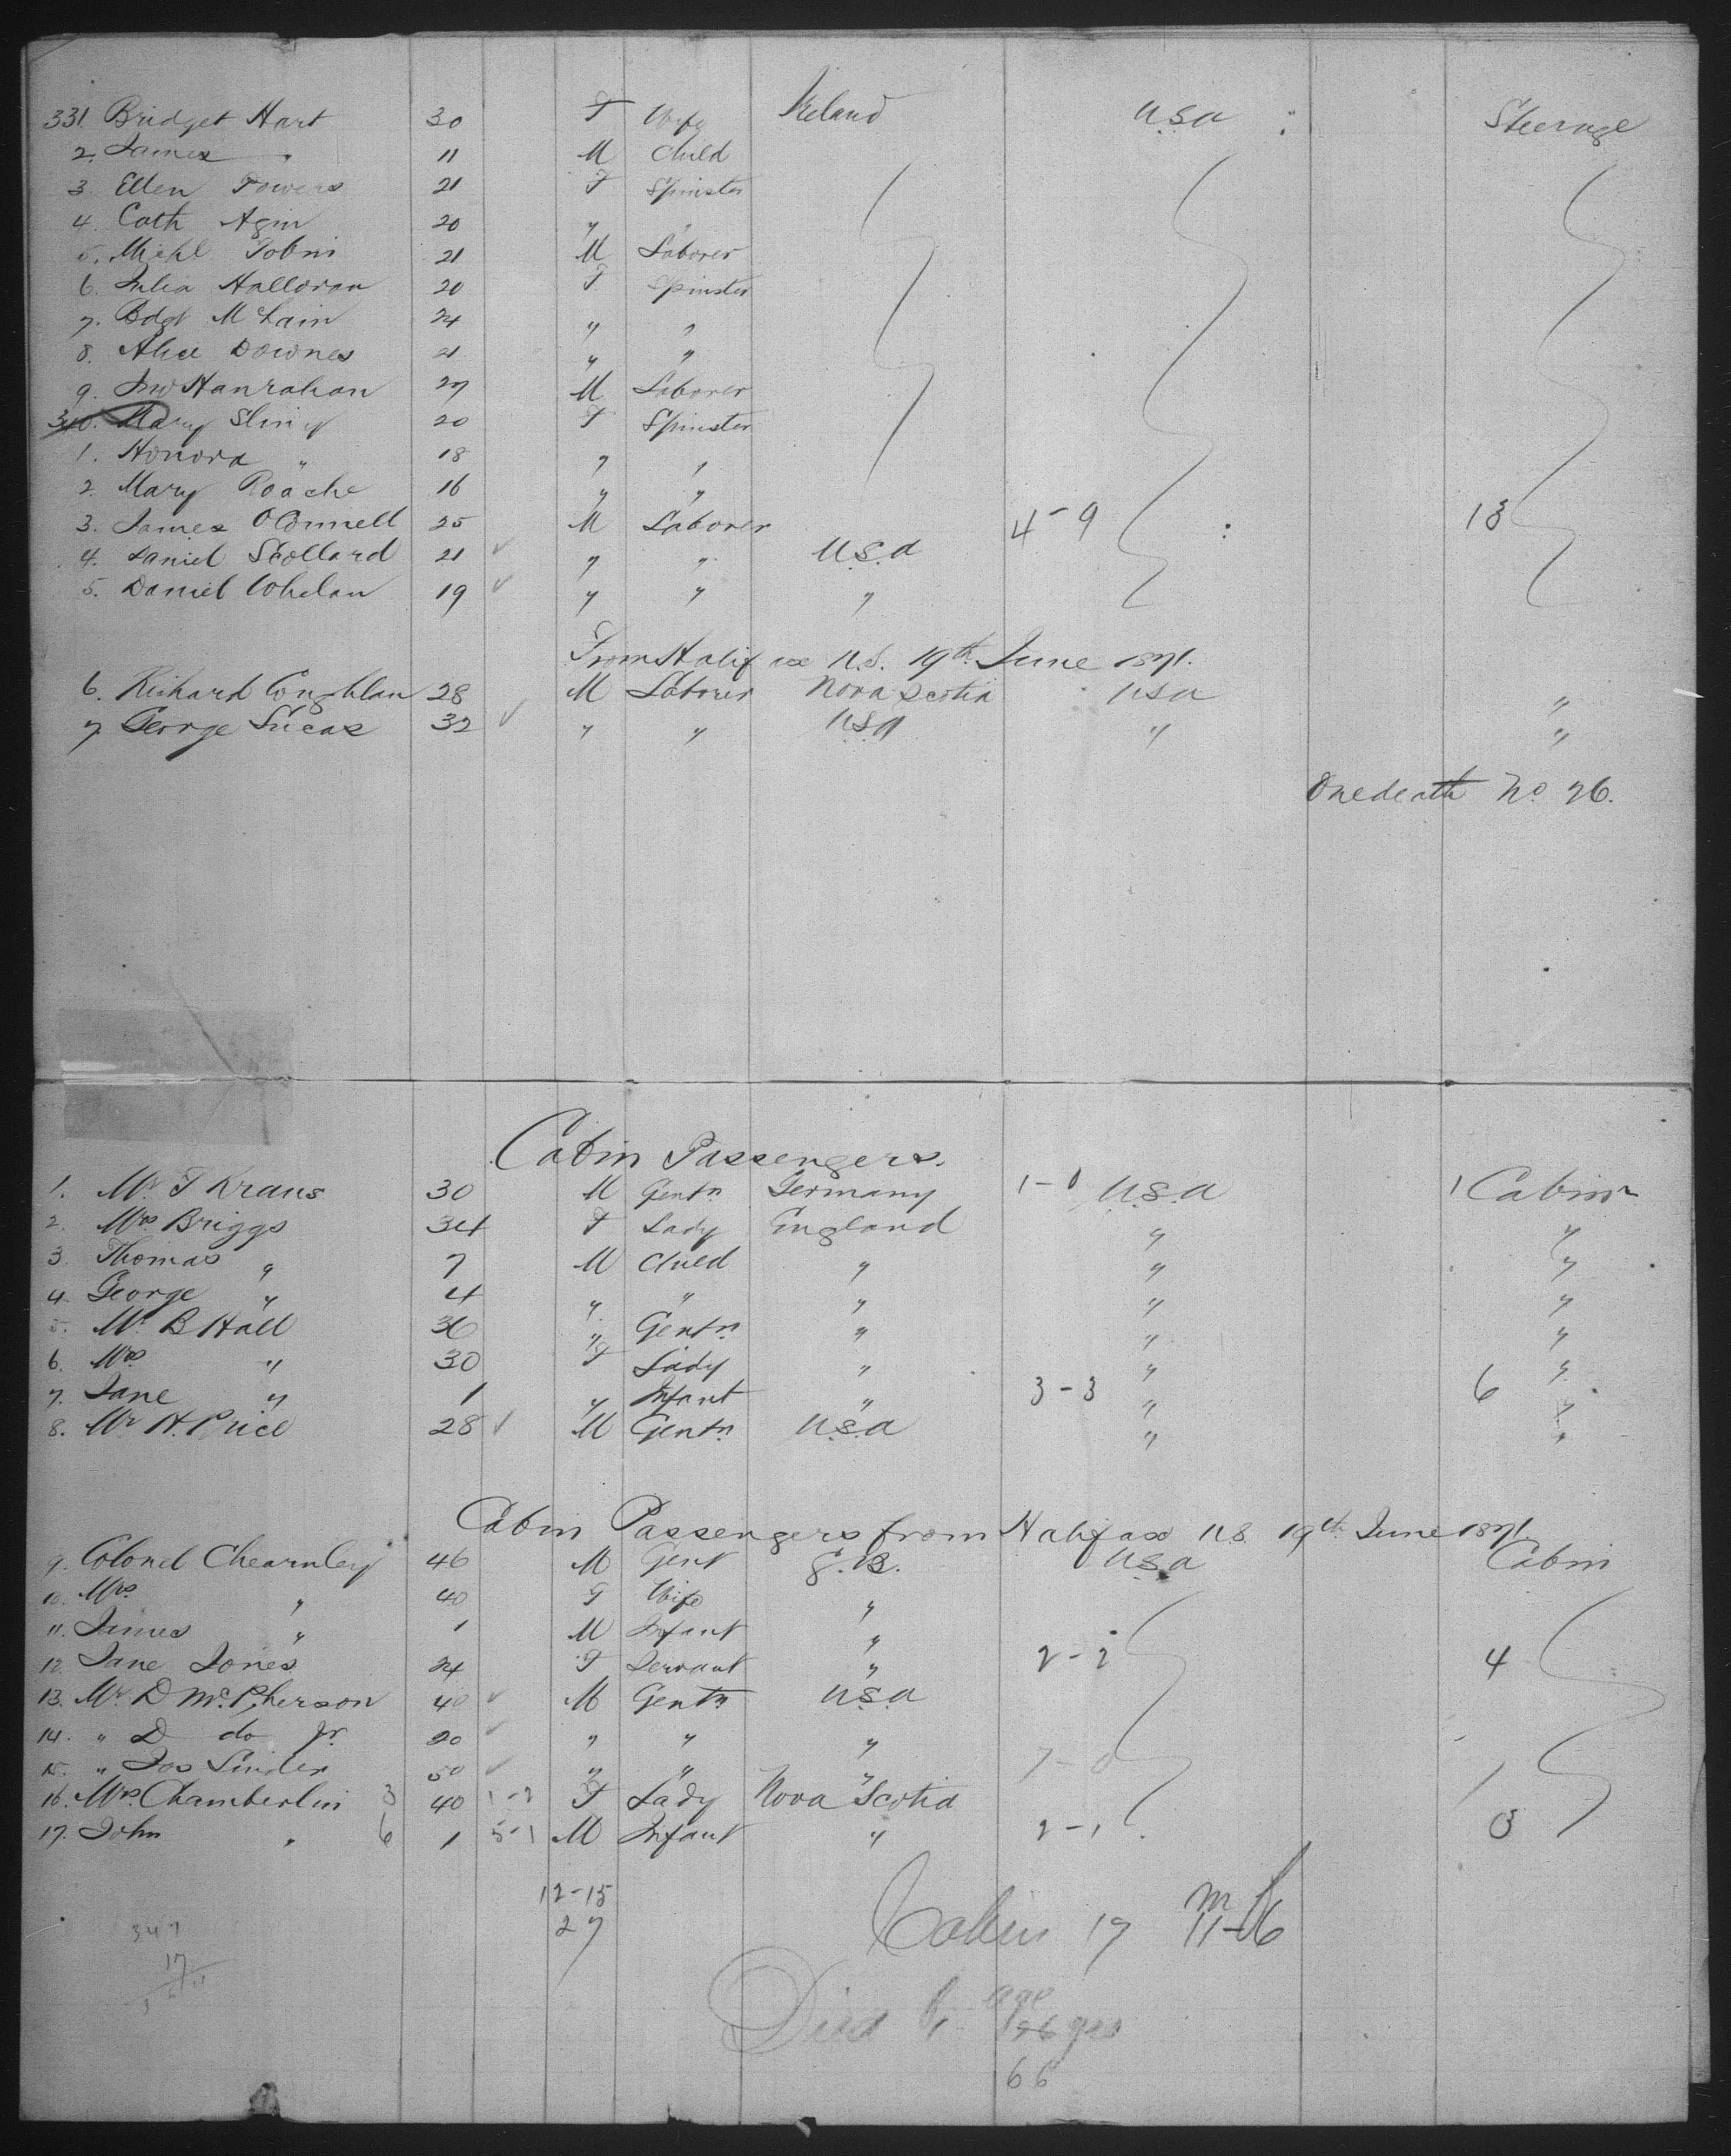 331. Bridget Hart 30 F Wife Ireland U.S.A Steerage
2. James " 11 M Child
3. Ellen Powers 21 F Spinster
4. Cath Agin 20 " "
5. Michl Tobin 21 M Laborer
6. Julia Halloran 20 F Spinster
7. Bdgt McLain 24 " "
8. Alice Downes 21 " "
9. Jno Hanrahan 27 M Laborer
340. Mary Sliny 20 F Spinster
1. Honora " 18 " "
2. Mary Roache 16 " "
3. James OConnell 25 M Laborer 4-9 13
4. Daniel Scollard 21 " " U.S.A
5. Daniel Whelan 19 " " "
From Halifax N.S. 19th June 1871.
6. Richard Coughlan 28 M Laborer Nova Scotia USA "
7. George Lucas 32 " " USA " "
One death No 76.
Cabin Passengers.
1. Mr. F Kraus 30 M Gentn Germany 1-0 U.S.A 1 Cabin
2. Mrs Briggs 34 F Lady England " "
3. Thomas " 7 M Child " " "
4. George " 4 " " " " "
5. Mr. B Hall 36 " Gentn " " "
6. Mrs. " 30 F Lady " " "
7. Jane " 1 " Infant " 3-3 " 6 "
8. Mr H. Price 28 M Gentn U.S.A " "
Cabin Passengers from Halifax N.S. 19th June 1871.
9. Colonel Chearnley 46 M Gent G.B. U.S.A Cabin
10. Mrs. " 40 F Wife "
11. James " 1 M Infant "
12. Jane Jones 24 F Servant " 2-2 4
13. Mr D McPherson 40 M Gentn U.S.A
14. " D do Jr. 20 " " "
15. " Jos 50 " " "
16. Mrs. Chamberlin 3 40 1-2 F Lady Nova Scotia
17. John " 6 1 5-1 M Infant " 2-1 3
12-15
27
Cabin 17 m 11-6
347
17
Died age
66